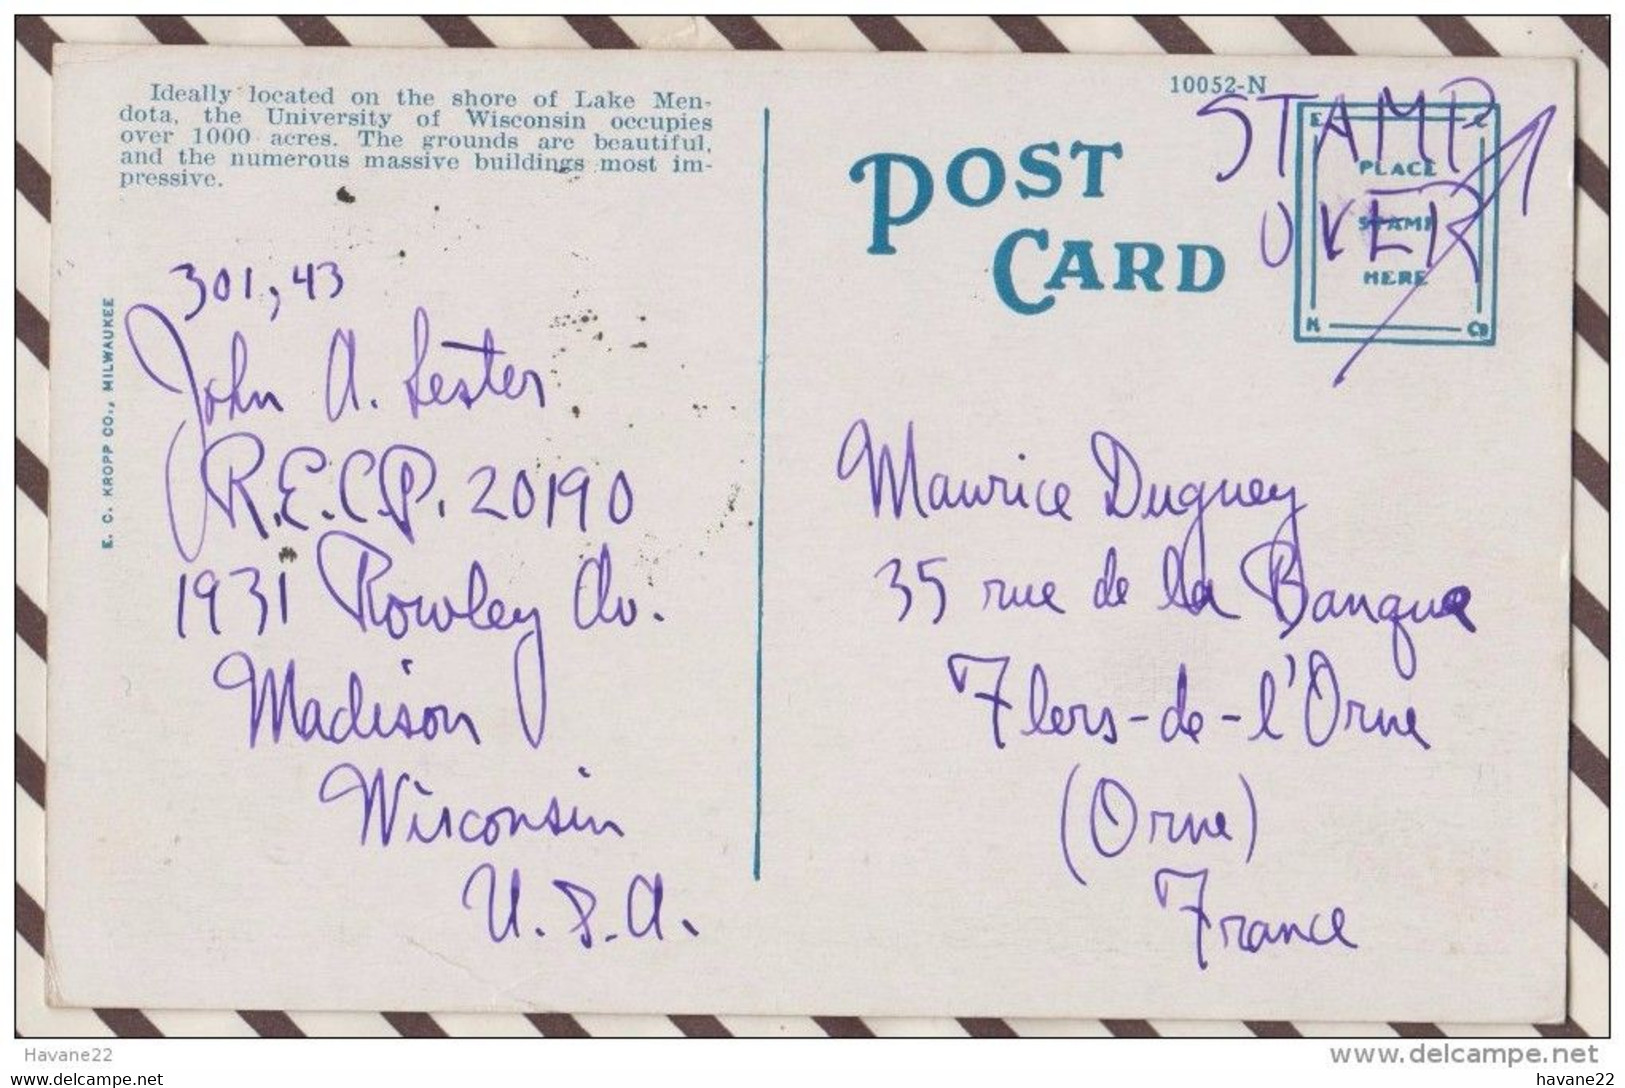 Ideally located on the shore of Lake Men-
dota, the University of Wisconsin occupies
over 1000 acres. The grounds are beautiful,
and the numerous massive buildings most im-
pressive.
301,43
John A. Lester
R.E.C.P. 20190
1931 Rowley Av.
Madison
Wisconsin
U.S.A.
E. C. KROPP CO., MILWAUKEE
POST
CARD
10052-N
STAMP
OVER
E C
PLACE
STAMP
HERE
K CO
Maurice Duguey
35 rue de la Banque
Flers-de-l'Orne
(Orne)
France
Havane22
www.delcampe.net
www.delcampe.net
havane22